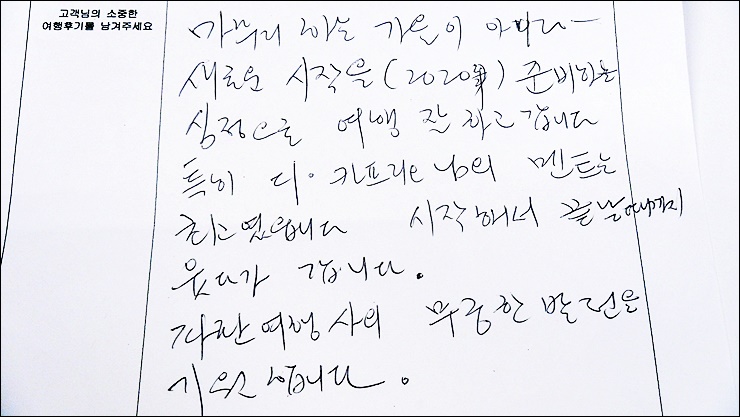 고객님의 소중한
여행후기를 남겨주세요
마무리 하는 가을이 아니라
새로운 시작을 (2020年) 준비하는
심정으로 여행 잘 하고 갑니다
특히 디·카프리오님의 멘트는
최고였습니다 시작해서 끝날때까지
웃다가 갑니다.
여행사의 무궁한 발전을
기원합니다.